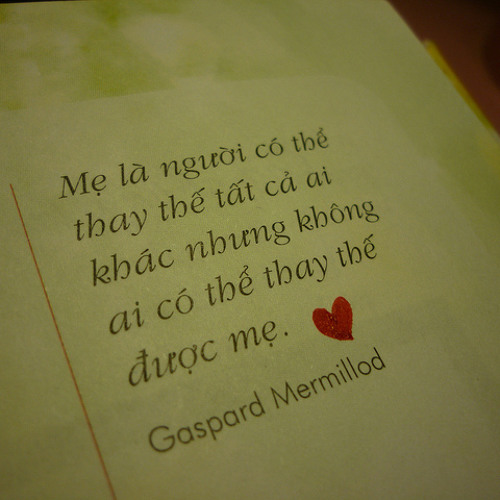 Mẹ là người có thể
thay thế tất cả ai
khác nhưng không
ai có thể thay thế
được mẹ.
Gaspard Mermillod